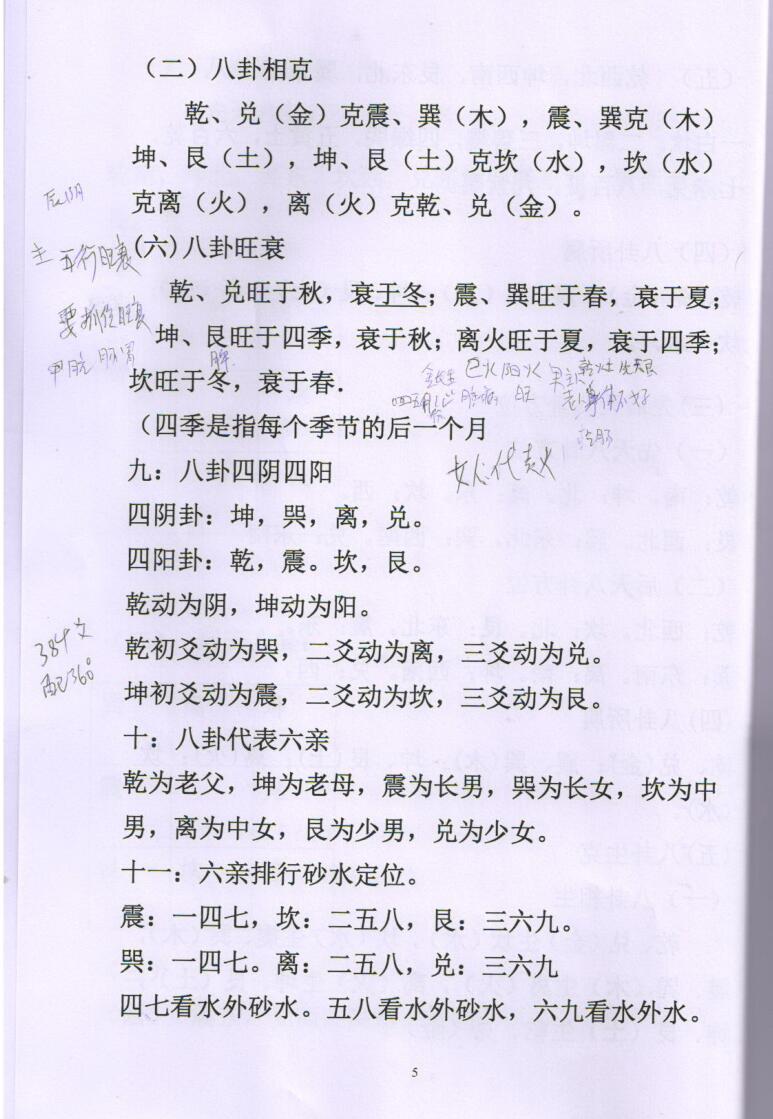 （二）八卦相克
乾、兑（金）克震、巽（木），震、巽克（木）
坤、艮（土），坤、艮（土）克坎（水），坎（水）
克离（火），离（火）克乾、兑（金）。
主 五行旺衰
(六)八卦旺衰
乾、兑旺于秋，衰于冬；震、巽旺于春，衰于夏；
要抓住旺衰
坤、艮旺于四季，衰于秋；离火旺于夏，衰于四季；
脾
坎旺于冬，衰于春．
（四季是指每个季节的后一个月
九：八卦四阴四阳
四阴卦：坤，哭，离，兑。
四阳卦：乾，震。坎，艮。
乾动为阴，坤动为阳。
384爻
配360°
乾初爻动为哭，二爻动为离，三爻动为兑。
坤初爻动为震，二爻动为坎，三爻动为艮。
十：八卦代表六亲
乾为老父，坤为老母，震为长男，哭为长女，坎为中
男，离为中女，艮为少男，兑为少女。
十一：六亲排行砂水定位。
震：一四七，坎：二五八，艮：三六九。
哭：一四七。离：二五八，兑：三六九
四七看水外砂水。五八看水外砂水，六九看水外水。
5